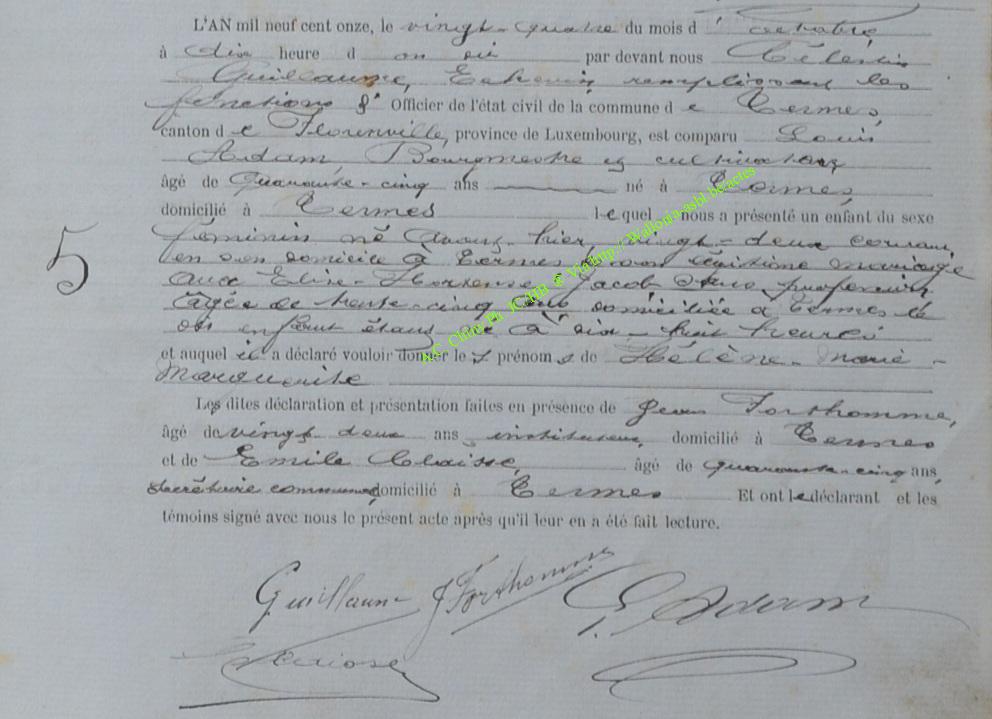 L'AN mil neuf cent onze, le vingt-quatre du mois d'octobre
à dix heure d par devant nous Célestin
Guillaume, Echevin remplissant les
fonctions d' Officier de l'état civil de la commune de Termes,
canton de Florenville, province de Luxembourg, est comparu Louis
Adam, Bourgmestre et cultivateur
âgé de quarante-cinq ans né à Termes,
domicilié à Termes lequel nous a présenté un enfant du sexe
5
féminin né avant-hier, vingt-deux courant,
en son domicile à Termes de son légitime mariage
avec Elise-Hortense Jacob sans profession
âgée de trente-cinq ans domiciliée à Termes le
dit enfant étant né à dix-huit heures
et auquel il a déclaré vouloir donner les prénoms de Hélène-Marie-
Marguerite
Les dites déclaration et présentation faites en présence de Jean Forthomme,
âgé de vingt-deux ans instituteur, domicilié à Termes
et de Emile Claisse, âgé de quarante-cinq ans,
secrétaire communal domicilié à Termes Et ont le déclarant et les
témoins signé avec nous le présent acte après qu'il leur en a été fait lecture.
Guillaume J Forthomme L Adam
E Claisse